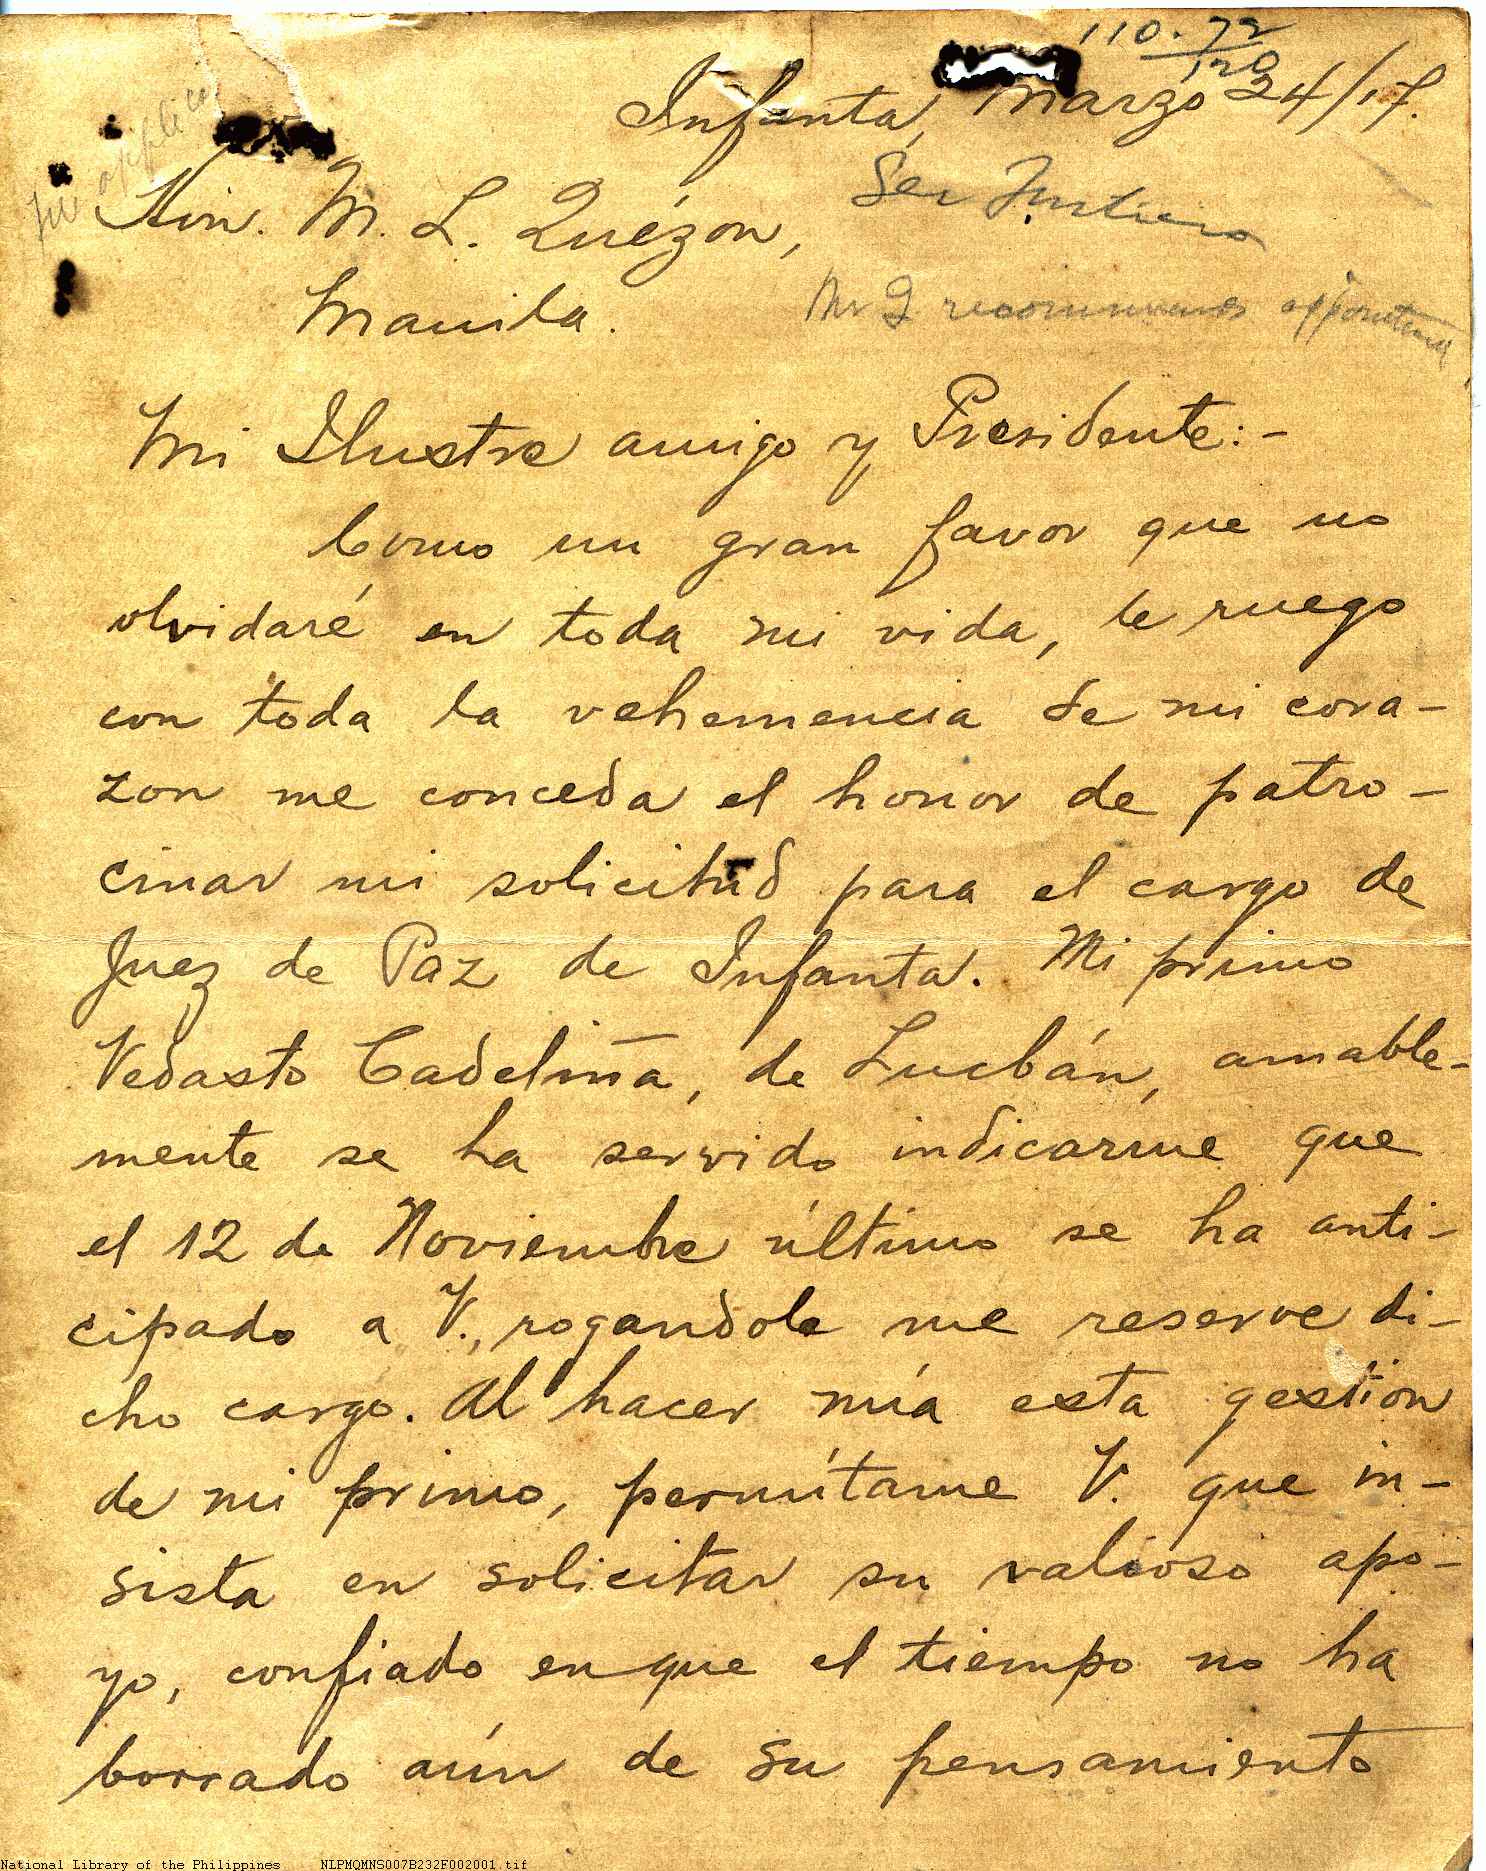 110.72
120
Infanta, Marzo 24/17.
file applica
Hon. M. L. Quézon,
Sec Justice
Manila.
Mr Q recommends appointment
Mi Ilustre amigo y Presidente:-
Como un gran favor que no
olvidaré en toda mi vida, le ruego
con toda la vehemencia de mi cora-
zon me conceda el honor de patro-
cinar mi solicitud para el cargo de
Juez de Paz de Infanta. Mi primo
Vedasto Cadeliña, de Lucbán, amable-
mente se ha servido indicarme que
el 12 de Noviembre último se ha anti-
cipado a V., rogandole me reserve di-
cho cargo. Al hacer mía esta gestión
de mi primo, permítame V. que in-
sista en solicitar su valioso apo-
yo, confiado en que el tiempo no ha
borrado aún de su pensamiento
National Library of the Philippines NLPMQMNS007B232F002001.tif